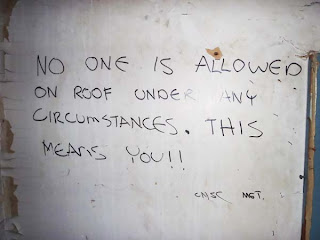 NO ONE IS ALLOWED
ON ROOF UNDER ANY
CIRCUMSTANCES. THIS
MEANS YOU!!
MGT.